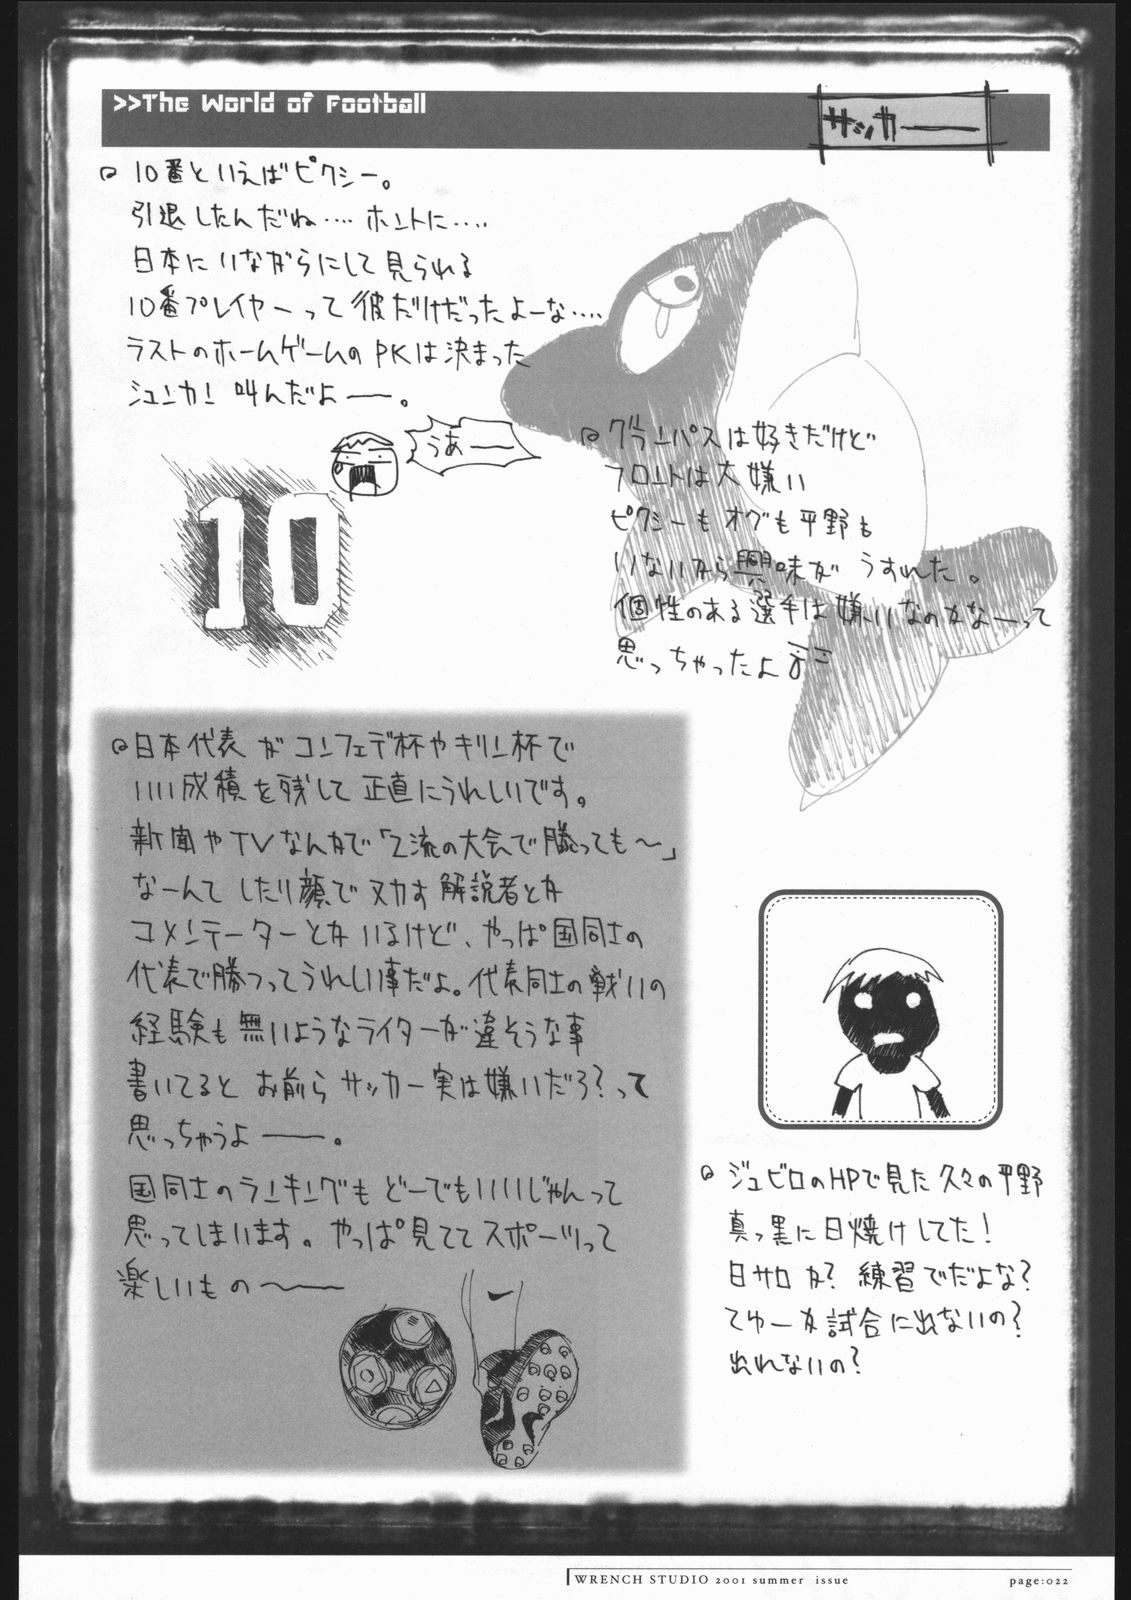 >>The World of Football
サッカー
10番といえばピクシー。
引退したんだね‥‥ホントに‥‥
日本にいながらにして見られる
10番プレイヤーって彼だけだったよーな‥‥
ラストのホームゲームのPKは決まった
シュンカン叫んだよ——。
うあ——
10
グランパスは好きだけど
フロントは大嫌い
ピクシーもオグも平野も
いないから興味がうすれた。
個性のある選手は嫌いなのかなーって
思っちゃったよ
日本代表がコンフェデ杯やキリン杯で
いい成績を残して正直にうれしいです。
新聞やTVなんかで「2流の大会で勝っても〜」
なーんてしたり顔でヌカす解説者とか
コメンテーターとかいるけど、やっぱ国同士の
代表で勝つってうれしい事だよ。代表同士の戦いの
経験も無いようなライターが違そうな事
書いてるとお前らサッカー実は嫌いだろ?って
思っちゃうよ——。
国同士のランキングもどーでもいいじゃんって
思ってしまいます。やっぱ見ててスポーツって
楽しいもの〜——
ジュビロのHPで見た久々の平野
真っ黒に日焼けしてた!
日サロか?練習でだよな?
てゆーか試合に出ないの?
出れないの?
WRENCH STUDIO 2001 summer issue
page:022